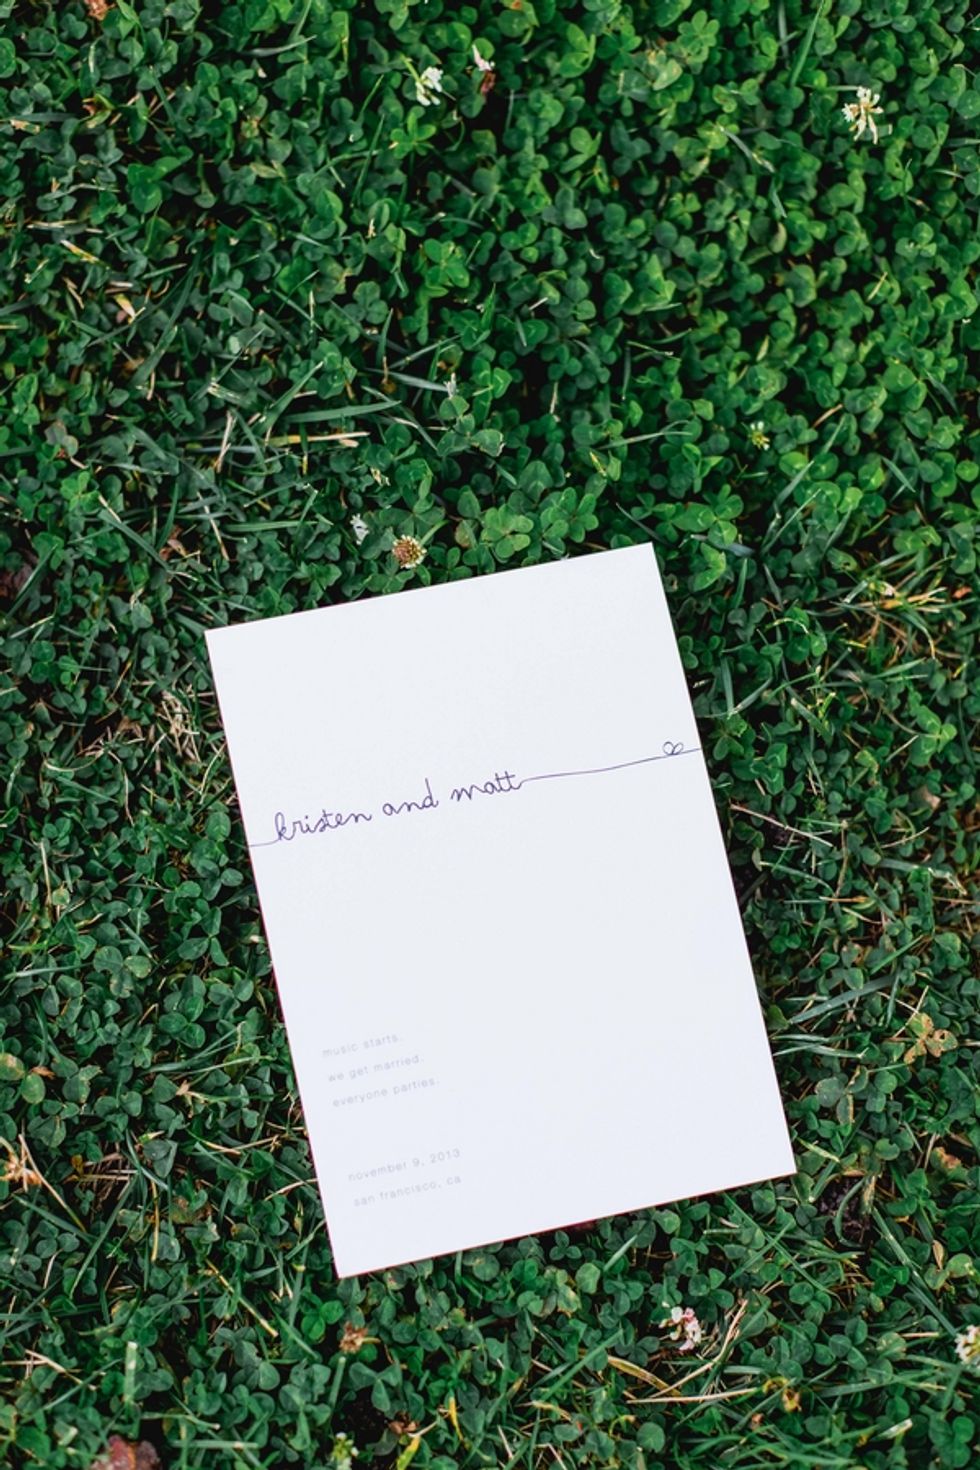 kristen and matt
music starts.
we get married.
everyone parties.
november 9, 2013
san francisco, ca